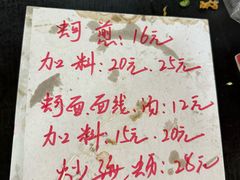 蚵煎:16元
加料:20元.25元
面.面线.汤:12元
加料:15元.20元
炒海:28元